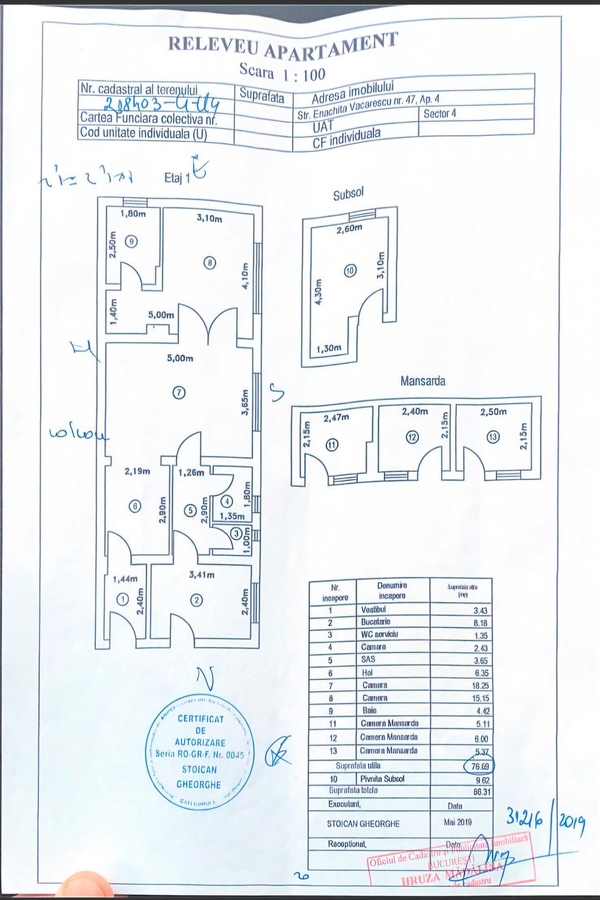 RELEVEU APARTAMENT
Scara 1 : 100
Nr. cadastral al terenului
Suprafata
Adresa imobilului
Str. Enachita Vacarescu nr. 47, Ap. 4
Cartea Funciara colectiva nr.
UAT
Sector 4
Cod unitate individuala (U)
CF individuala
Etaj 1
1,80m
3,10m
2,50m
9
8
4,10m
1,40m
5,00m
5,00m
7
3,65m
2,19m
1,26m
6
2,90m
5
2,90m
4
1,80m
1,35m
3
1,00m
1,44m
3,41m
1
2,40m
2
2,40m
Subsol
2,60m
10
3,10m
4,30m
1,30m
Mansarda
2,47m
2,40m
2,50m
2,15m
2,15m
2,15m
11
12
13
N
S
CERTIFICAT
DE
AUTORIZARE
Seria RO-GR-F. Nr. 0045
STOICAN
GHEORGHE
Nr. incapere Denumire incapere Suprafata utila (mp)
1 Vestibul 3.43
2 Bucatarie 8.18
3 WC serviciu 1.35
4 Camara 2.43
5 SAS 3.65
6 Hol 6.35
7 Camera 18.25
8 Camera 15.15
9 Baie 4.42
11 Camera Mansarda 5.11
12 Camera Mansarda 6.00
13 Camera Mansarda 5.37
Suprafata utila 76.69
10 Pivnita Subsol 9.62
Suprafata totala 86.31
Executant, Data
STOICAN GHEORGHE Mai 2019
Receptionat, Data
31216/2019
Oficiul de Cadastru si Publicitate Imobiliară
BUCURESTI
HRUZA MĂDĂLINA